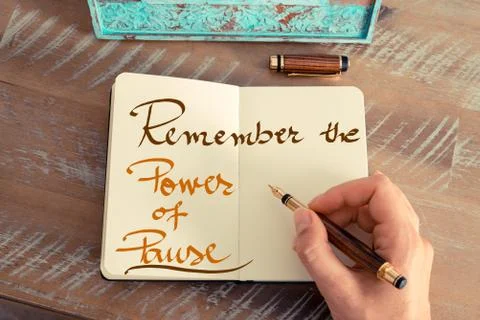 Remember the
Power
of
Pause